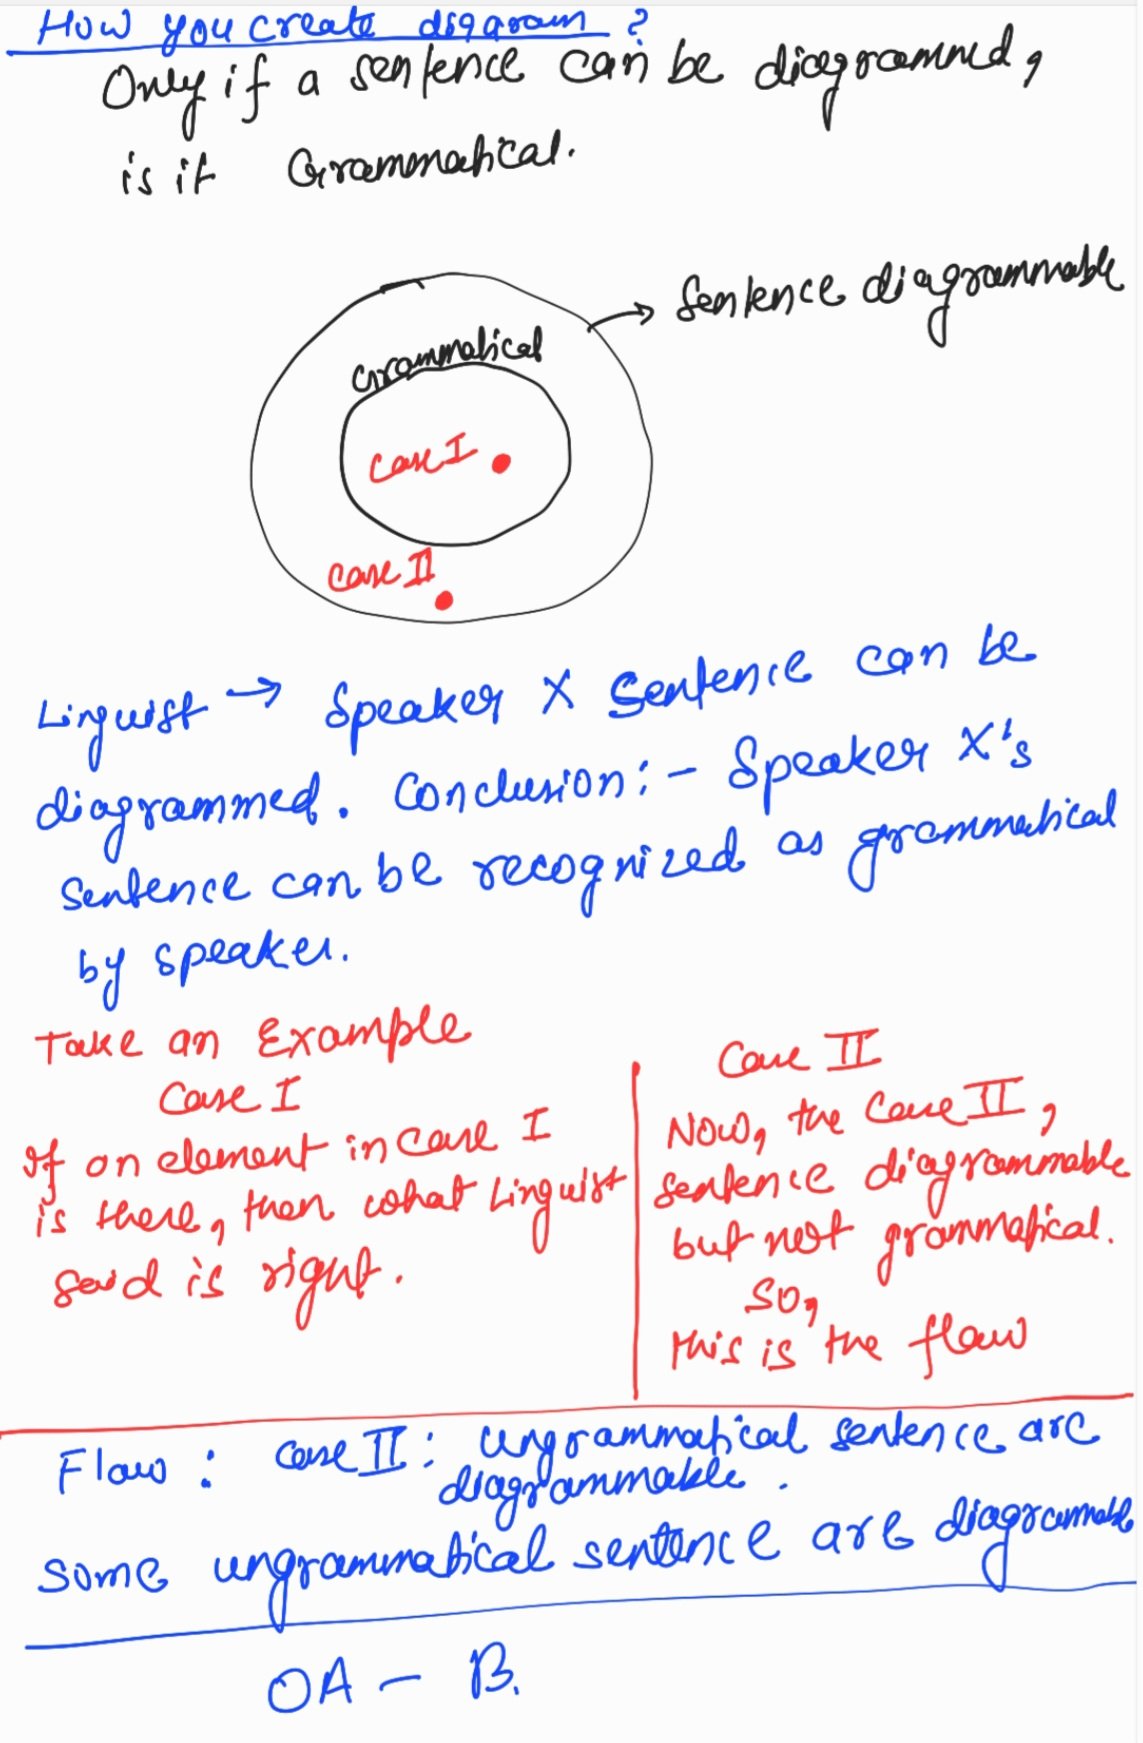 How you create diagram ?
Only if a sentence can be diagrammed,
is it Grammatical.
Sentence diagrammable
Grammatical
Case I
Case II
Linguist → Speaker X Sentence can be
diagrammed. Conclusion :- Speaker X's
sentence can be recognized as grammatical
by speaker.
Take an Example
Case I
If an element in case I
is there, then what Linguist
said is right.
Case II
Now, the Case II,
sentence diagrammable
but not grammatical.
So,
this is the flaw
Flaw : Case II : ungrammatical sentence are
diagrammable.
some ungrammatical sentence are diagrammable
OA - B.